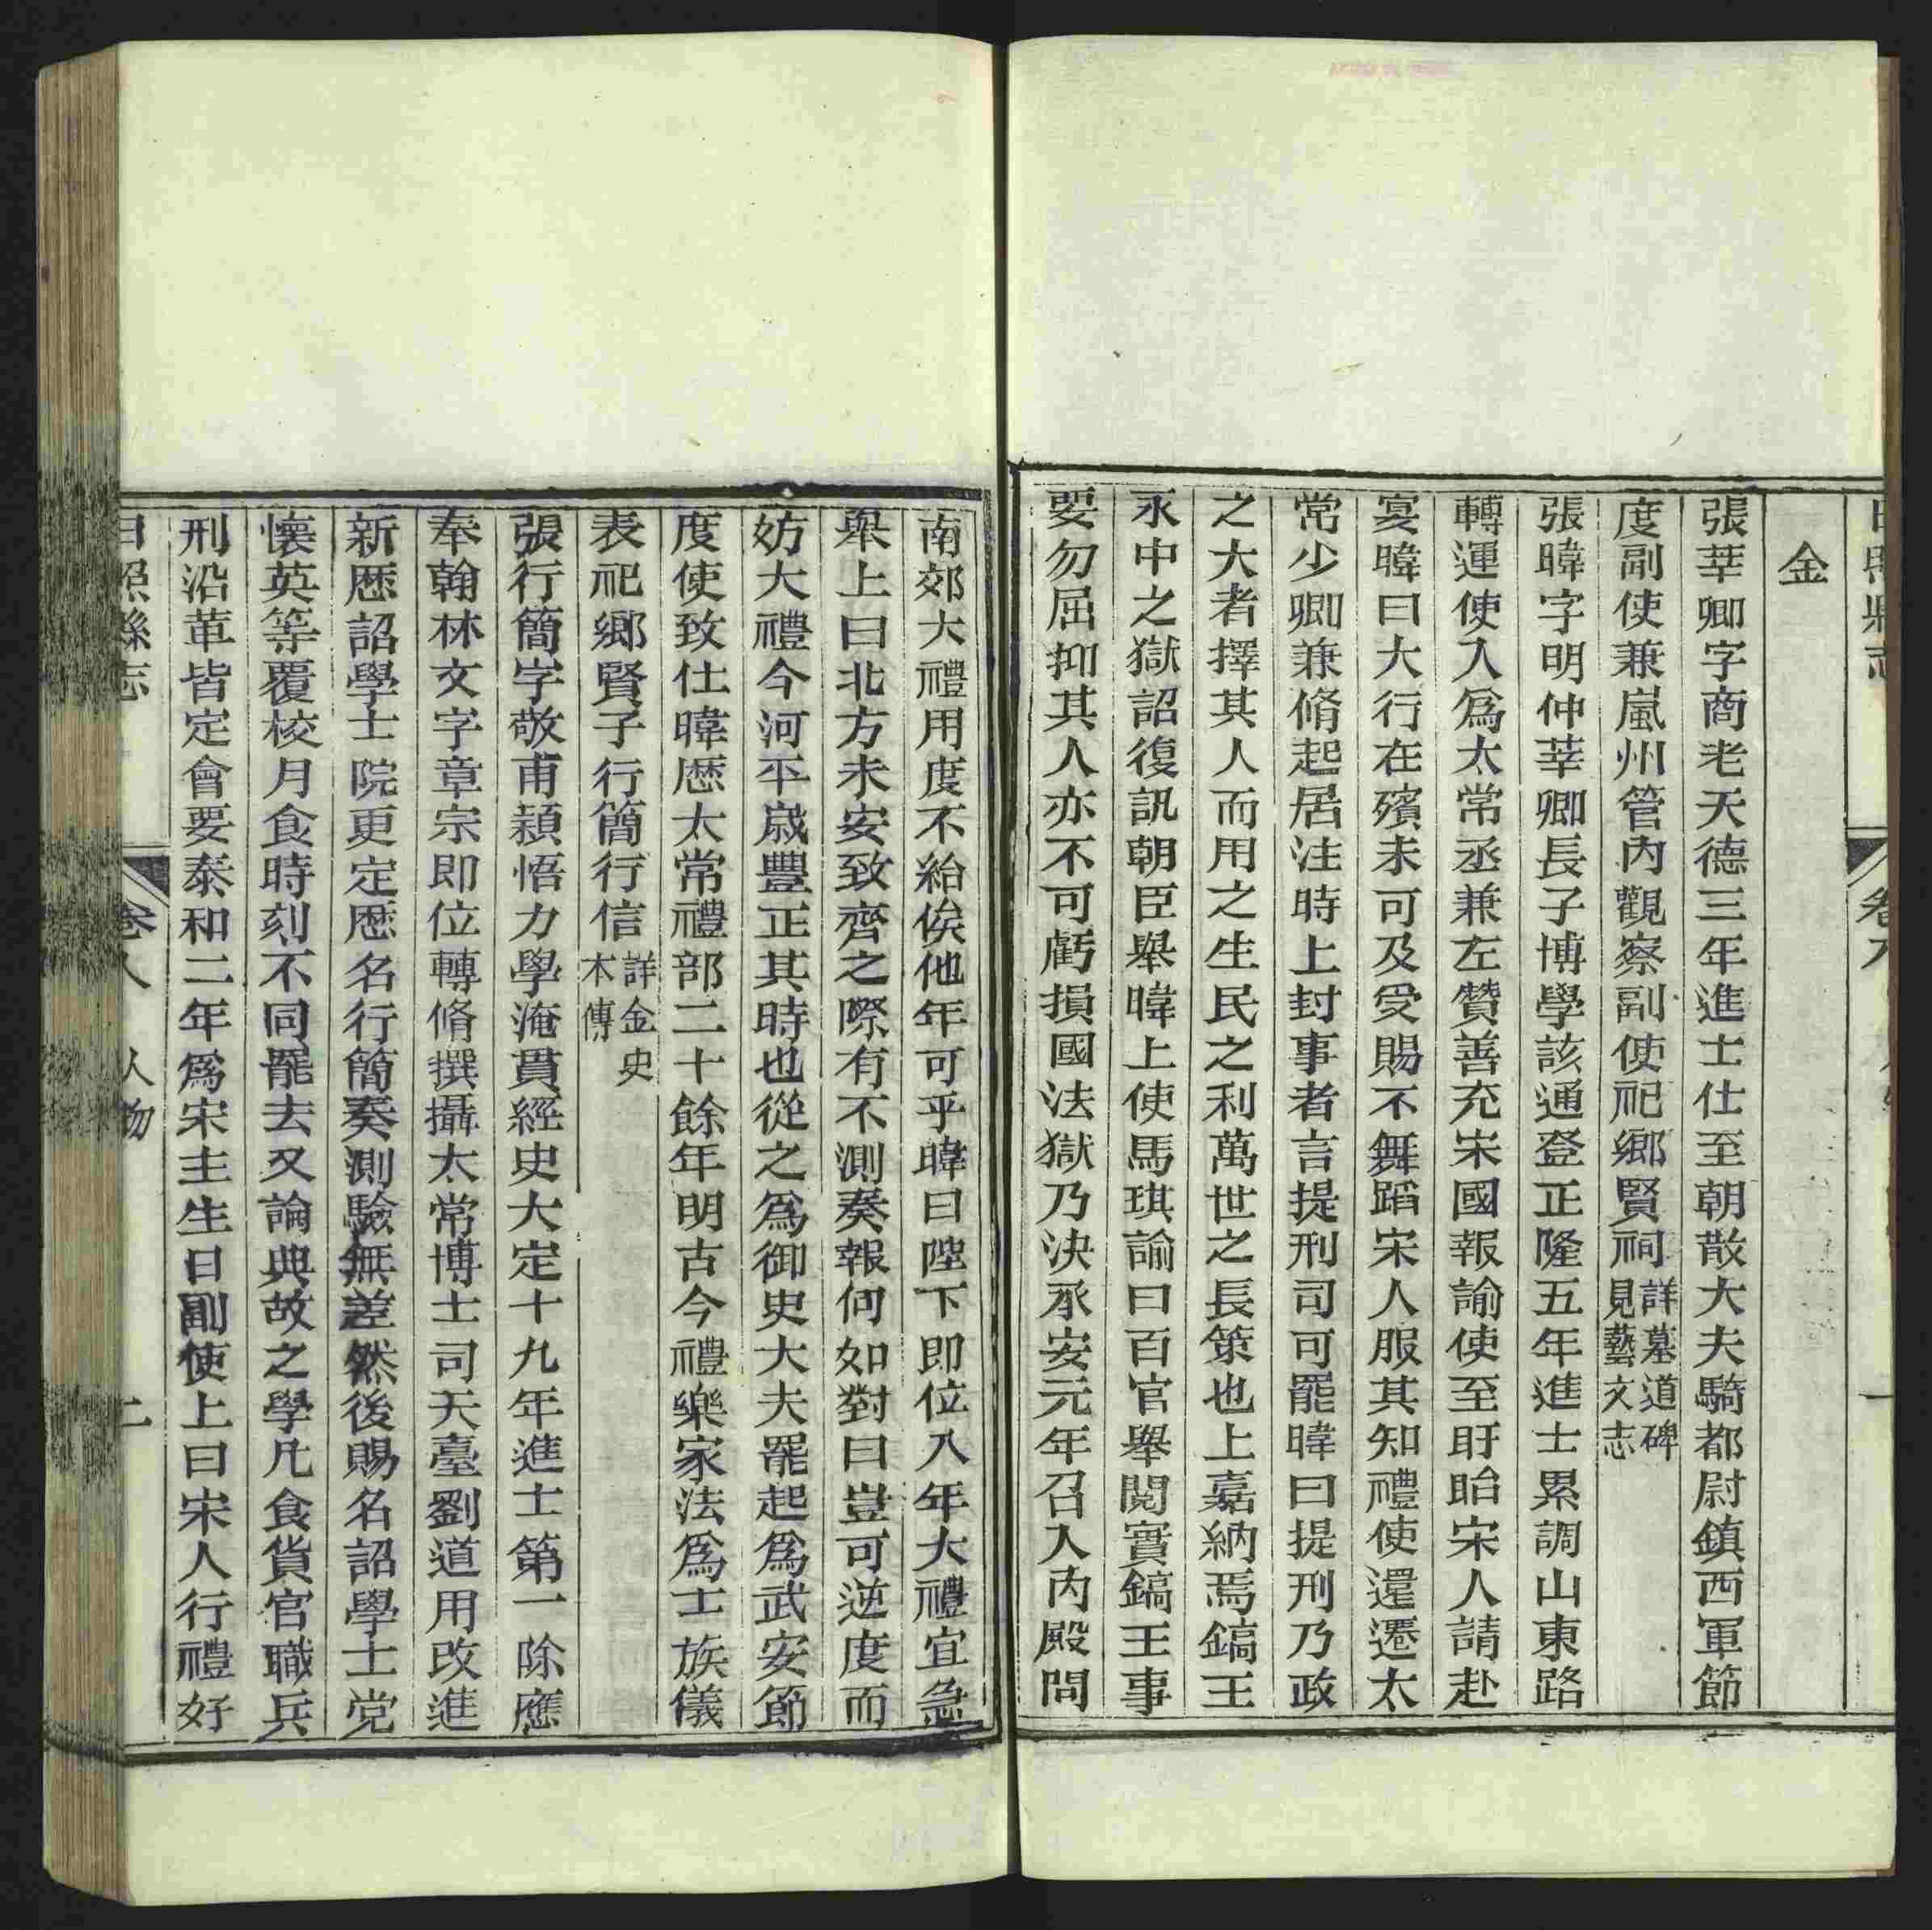 日照縣志 卷八 一
金
張莘卿字商老天德三年進士仕至朝散大夫騎都尉鎮西軍節
度副使兼嵐州管內觀察副使祀鄉賢祠詳墓道碑見藝文志
張暐字明仲莘卿長子博學該通登正隆五年進士累調山東路
轉運使入爲太常丞兼左贊善充宋國報諭使至盱眙宋人請赴
宴暐曰大行在殯未可及受賜不舞蹈宋人服其知禮使還遷太
常少卿兼脩起居注時上封事者言提刑司可罷暐曰提刑乃政
之大者擇其人而用之生民之利萬世之長策也上嘉納焉鎬王
永中之獄詔復訊朝臣舉暐上使馬琪諭曰百官舉閱實鎬王事
要勿屈抑其人亦不可虧損國法獄乃決承安元年召入內殿問
南郊大禮用度不給俟他年可乎暐曰陛下即位八年大禮宜急
舉上曰北方未安致齊之際有不測奏報何如對曰豈可逆度而
妨大禮今河平歲豐正其時也從之爲御史大夫罷起爲武安節
度使致仕暐歷太常禮部二十餘年明古今禮樂家法爲士族儀
表祀鄉賢子行簡行信詳金史本傳
張行簡字敬甫穎悟力學淹貫經史大定十九年進士第一除應
奉翰林文字章宗即位轉脩撰攝太常博士司天臺劉道用改進
新歷詔學士院更定歷名行簡奏測驗無差然後賜名詔學士党
懷英等覆校月食時刻不同罷去又論典故之學凡食貨官職兵
刑沿革皆定會要泰和二年爲宋主生日副使上曰宋人行禮好
日照縣志 卷八 人物 二